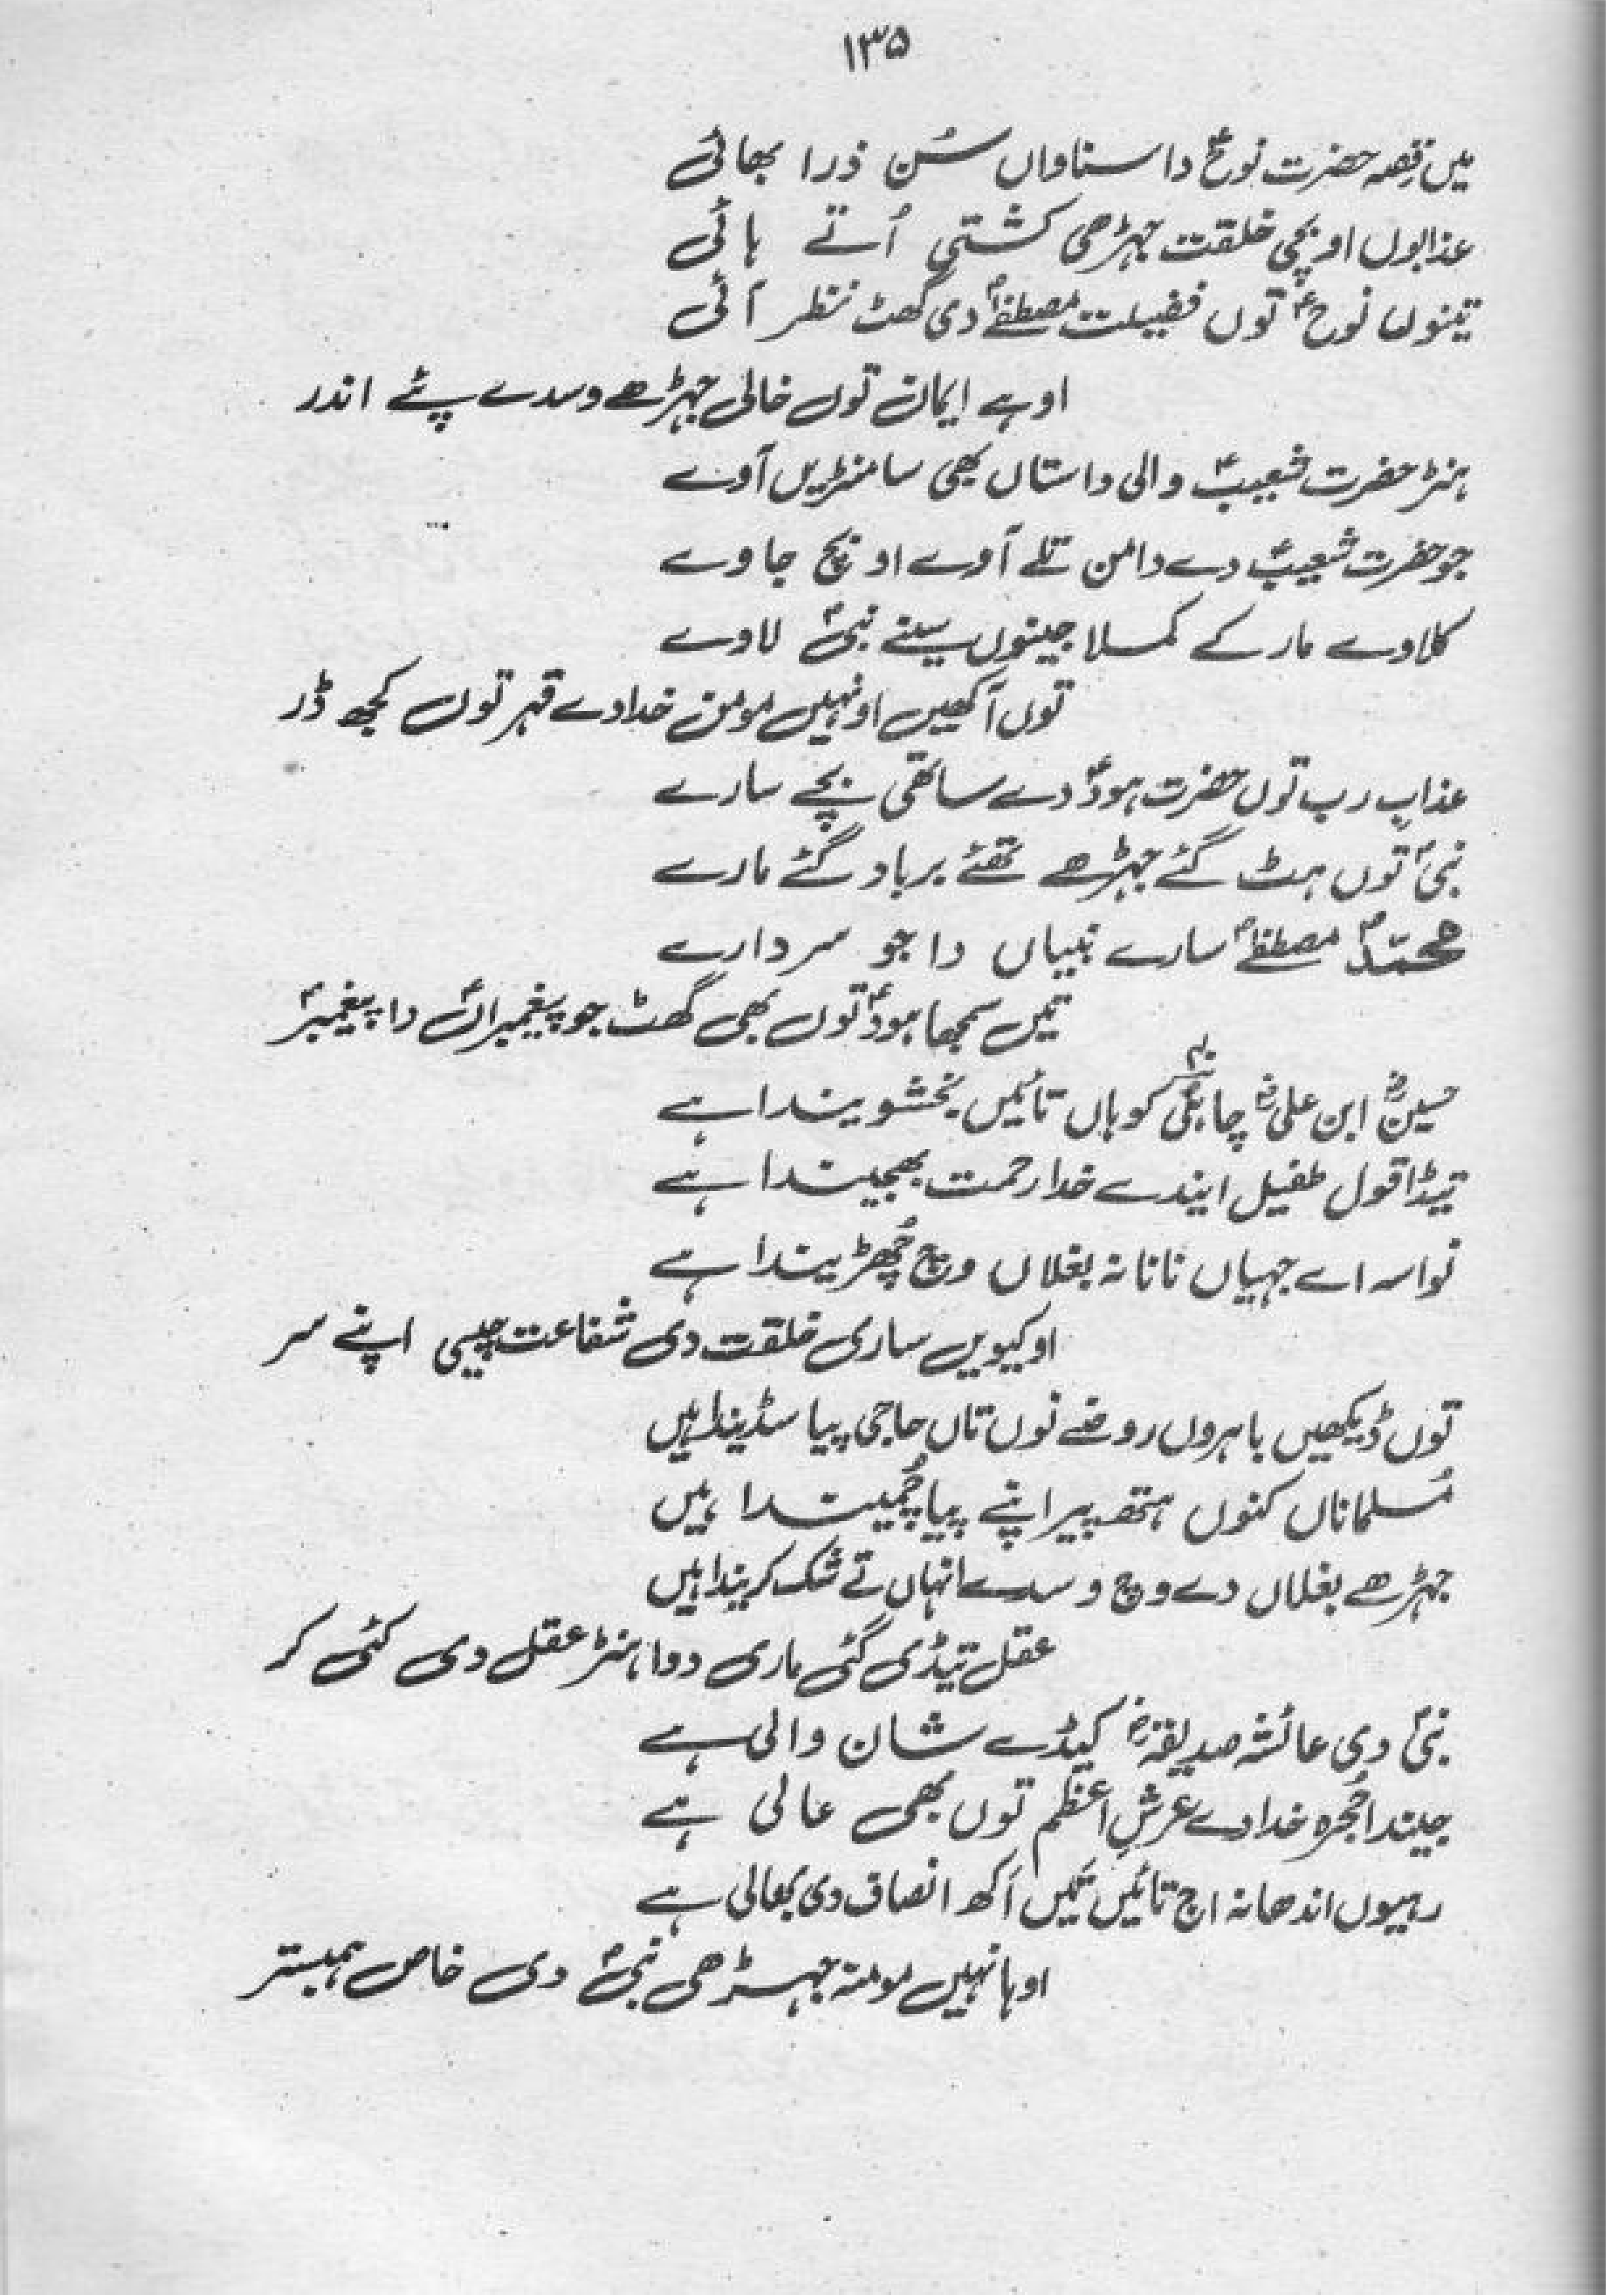 ۱۳۵
میں قصہ حضرت نوحؑ دا سناواں سُن ذرا بھائی
عذابوں او بچی خلقت جہڑھی کشتی اُتے ہائی
تینوں نوحؑ توں فضیلت مصطفےٰؐ دی گھٹ نظر آئی
او ہے ایمان توں خالی جہڑھے وسدے پئے اندر
ہنڑ حضرت شعیبؑ والی داستاں بھی سامنڑیں آوے
جو حضرت شعیبؑ دے دامن تلے آوے او بچ جاوے
کلاوے مار کے کملا جینوں سینے نبیؐ لاوے
توں آکھیں او نہیں مومن خدا دے قہر توں کجھ ڈر
عذابِ رب توں حضرت ہودؑ دے ساتھی بچے سارے
نبیؑ توں ہٹ گئے جہڑھے تھئے برباد گئے مارے
محمدؐ مصطفےٰؐ سارے نبیاں دا جو سردارے
تیں سمجھا ہودؑ توں بھی گھٹ جو پیغمبراںؑ دا پیغمبرؐ
حسینؓ ابن علیؓ چا کوہاں تائیں بخشویندا ہے
تیڈا قول طفیل ایندے خدا رحمت بھجیندا ہے
نواسہ اے جہیاں نانا نہ بغلاں وچ چُھڑیندا ہے
او کیویں ساری خلقت دی شفاعت چیسی اپنے سر
توں ڈیکھیں باہروں روضے نوں تاں حاجی پیا سڈیندا ہیں
مُسلماناں کنوں ہتھ پیر اپنے پیا چُمیندا ہیں
جہڑھے بغلاں دے وچ وسدے انہاں تے شک کریندا ہیں
عقل تیڈی گئی ماری دوا ہنڑ عقل دی کئی کر
نبیؐ دی عائشہ صدیقہؓ کیڈے شان والی ہے
جیندا حُجرہ خدا دے عرشِ اعظم توں بھی عالی ہے
رہیوں اندھا نہ اج تائیں تَیں اَکھ انصاف دی بھالی ہے
اوہا نہیں مومنہ جہڑھی نبیؐ دی خاص ہمبستر